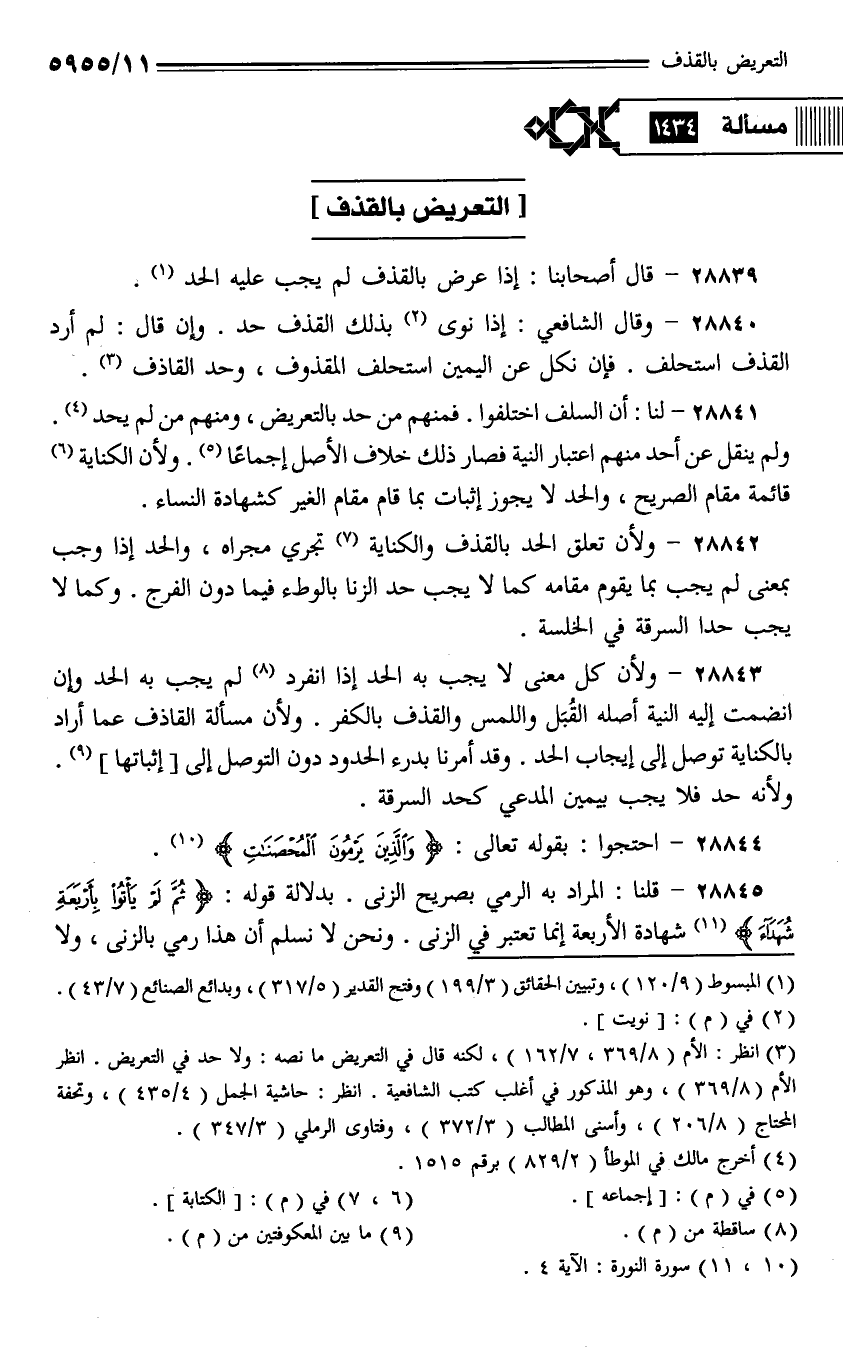 التعريض بالقذف ٥٩٥٥/١١
مسألة ١٤٣٤
[ التعريض بالقذف ]
٢٨٨٣٩ - قال أصحابنا : إذا عرض بالقذف لم يجب عليه الحد (١) .
٢٨٨٤٠ - وقال الشافعي : إذا نوى (٢) بذلك القذف حد . وإن قال : لم أرد
القذف استحلف . فإن نكل عن اليمين استحلف المقذوف ، وحد القاذف (٣) .
٢٨٨٤١ - لنا : أن السلف اختلفوا . فمنهم من حد بالتعريض ، ومنهم من لم يحد (٤) .
ولم ينقل عن أحد منهم اعتبار النية فصار ذلك خلاف الأصل إجماعًا (٥) . ولأن الكناية (٦)
قائمة مقام الصريح ، والحد لا يجوز إثبات بما قام مقام الغير كشهادة النساء .
٢٨٨٤٢ - ولأن تعلق الحد بالقذف والكناية (٧) تجري مجراه ، والحد إذا وجب
بمعنى لم يجب بما يقوم مقامه كما لا يجب حد الزنا بالوطء فيما دون الفرج . وكما لا
يجب حدا السرقة في الخلسة .
٢٨٨٤٣ - ولأن كل معنى لا يجب به الحد إذا انفرد (٨) لم يجب به الحد وإن
انضمت إليه النية أصله القُبَل واللمس والقذف بالكفر . ولأن مسألة القاذف عما أراد
بالكناية توصل إلى إيجاب الحد . وقد أمرنا بدرء الحدود دون التوصل إلى [ إثباتها ] (٩) .
ولأنه حد فلا يجب بيمين المدعي كحد السرقة .
٢٨٨٤٤ - احتجوا : بقوله تعالى : ﴿ وَٱلَّذِينَ يَرْمُونَ ٱلْمُحْصَنَٰتِ ﴾ (١٠) .
٢٨٨٤٥ - قلنا : المراد به الرمي بصريح الزنى . بدلالة قوله : ﴿ ثُمَّ لَمْ يَأْتُوا۟ بِأَرْبَعَةِ
شُهَدَآءَ ﴾ (١١) شهادة الأربعة إنما تعتبر في الزنى . ونحن لا نسلم أن هذا رمي بالزنى ، ولا
(١) المبسوط ( ١٢٠/٩ ) ، وتبيين الحقائق ( ١٩٩/٣ ) وفتح القدير ( ٣١٧/٥ ) ، وبدائع الصنائع ( ٤٣/٧ ) .
(٢) في ( م ) : [ نويت ] .
(٣) انظر : الأم ( ٣٦٩/٨ ، ١٦٢/٧ ) ، لكنه قال في التعريض ما نصه : ولا حد في التعريض . انظر
الأم ( ٣٦٩/٨ ) ، وهو المذكور في أغلب كتب الشافعية . انظر : حاشية الجمل ( ٤٣٥/٤ ) ، وتحفة
المحتاج ( ٢٠٦/٨ ) ، وأسنى المطالب ( ٣٧٢/٣ ) ، وفتاوى الرملي ( ٣٤٧/٣ ) .
(٤) أخرج مالك في الموطأ ( ٨٢٩/٢ ) برقم ١٥١٥ .
(٥) في ( م ) : [ إجماعه ] . (٦ ، ٧) في ( م ) : [ الكتابة ] .
(٨) ساقطة من ( م ) . (٩) ما بين المعكوفتين من ( م ) .
(١٠ ، ١١) سورة النورة : الآية ٤ .